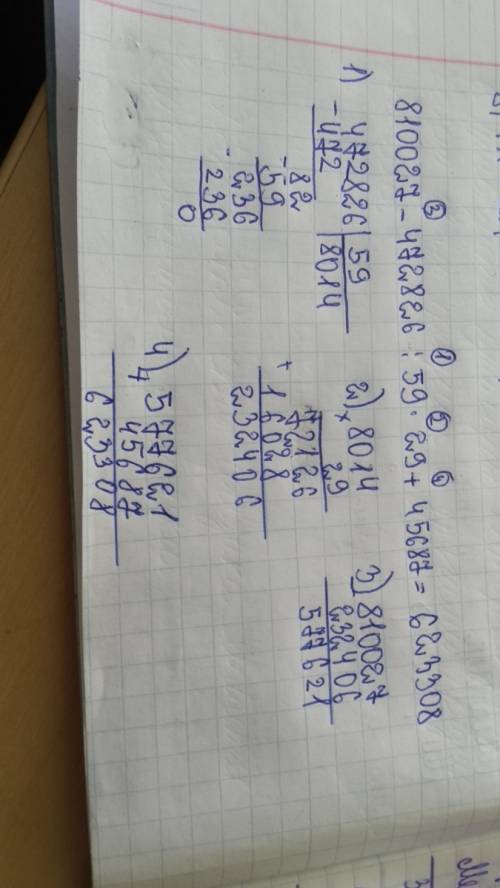 ③ ① ② ④
810027 - 472826 : 59 · 29 + 45687 = 623308
1) 472826 | 59
- 472 | 8014
82
- 59
236
- 236
0
2) 8014
× 29
72126
+ 16028
232406
3) 810027
232406
577621
4) 577621
+ 45687
623308